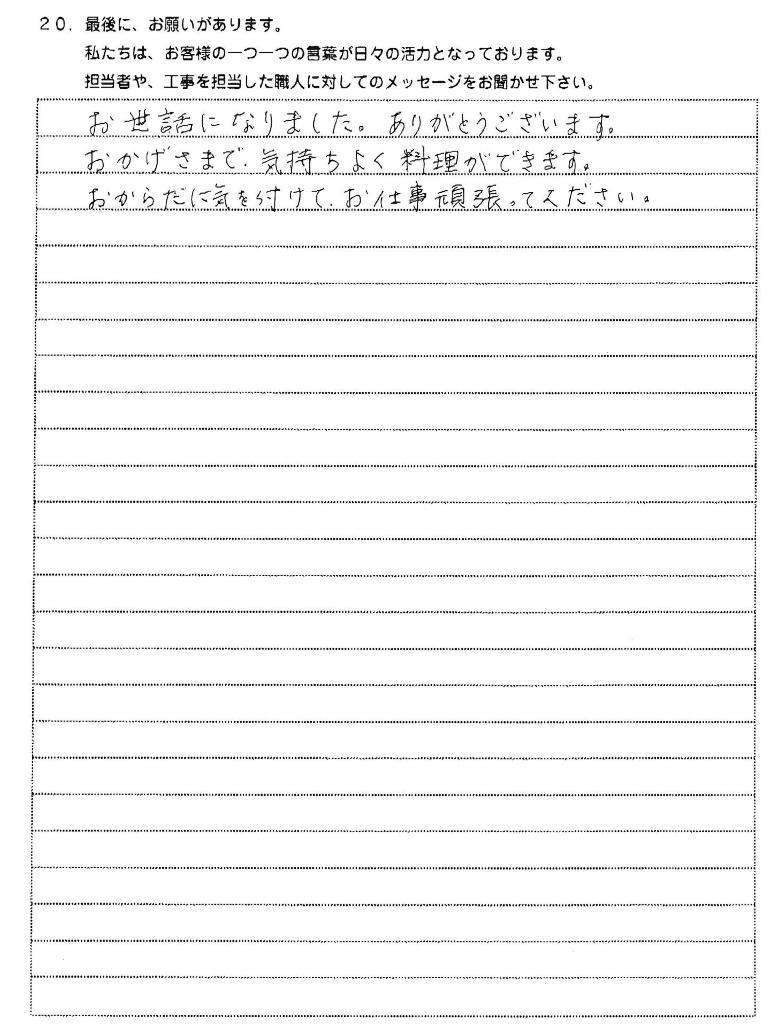 20. 最後に、お願いがあります。
私たちは、お客様の一つ一つの言葉が日々の活力となっております。
担当者や、工事を担当した職人に対してのメッセージをお聞かせ下さい。
お世話になりました。ありがとうございます。
おかげさまで、気持ちよく料理ができます。
おからだに気を付けて、お仕事頑張ってください。